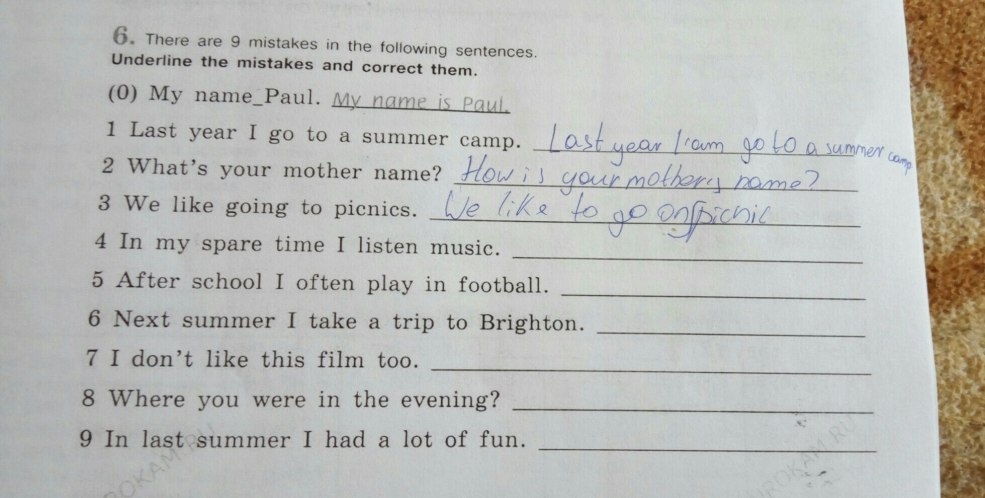 6. There are 9 mistakes in the following sentences.
Underline the mistakes and correct them.
(0) My name_Paul. My name is Paul.
1 Last year I go to a summer camp. Last year I am go to a summer camp
2 What's your mother name? How is your mother's name?
3 We like going to picnics. We like to go on picnic
4 In my spare time I listen music.
5 After school I often play in football.
6 Next summer I take a trip to Brighton.
7 I don't like this film too.
8 Where you were in the evening?
9 In last summer I had a lot of fun.